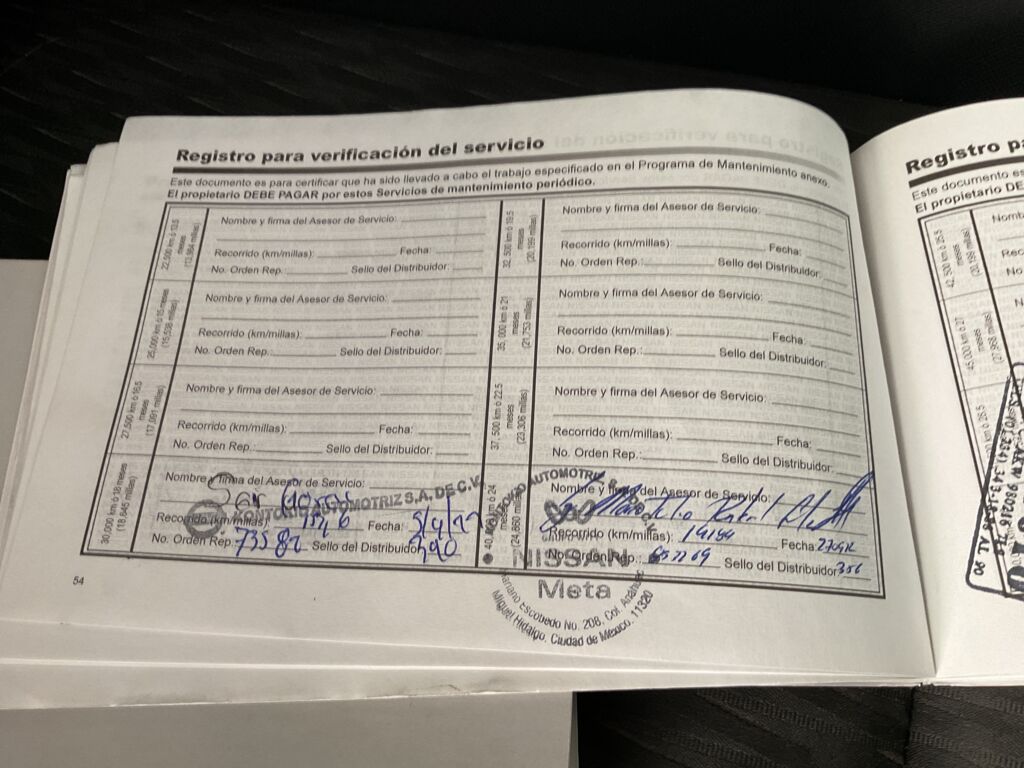 Registro para verificación del servicio
Este documento es para certificar que ha sido llevado a cabo el trabajo especificado en el Programa de Mantenimiento anexo.
El propietario DEBE PAGAR por estos Servicios de mantenimiento periódico.
22,500 km ó 13.5 meses (13,984 millas)
Nombre y firma del Asesor de Servicio:
Recorrido (km/millas): Fecha:
No. Orden Rep.: Sello del Distribuidor:
25,000 km ó 15 meses (15,538 millas)
Nombre y firma del Asesor de Servicio:
Recorrido (km/millas): Fecha:
No. Orden Rep.: Sello del Distribuidor:
27,500 km ó 16.5 meses (17,091 millas)
Nombre y firma del Asesor de Servicio:
Recorrido (km/millas): Fecha:
No. Orden Rep.: Sello del Distribuidor:
30,000 km ó 18 meses (18,645 millas)
Nombre y firma del Asesor de Servicio:
Recorrido (km/millas): Fecha:
No. Orden Rep.: Sello del Distribuidor:
AUTOMOTRIZ S.A. DE C.V.
32,500 km ó 19.5 meses (20,199 millas)
Nombre y firma del Asesor de Servicio:
Recorrido (km/millas): Fecha:
No. Orden Rep.: Sello del Distribuidor:
35,000 km ó 21 meses (21,753 millas)
Nombre y firma del Asesor de Servicio:
Recorrido (km/millas): Fecha:
No. Orden Rep.: Sello del Distribuidor:
37,500 km ó 22.5 meses (23,306 millas)
Nombre y firma del Asesor de Servicio:
Recorrido (km/millas): Fecha:
No. Orden Rep.: Sello del Distribuidor:
Nombre y firma del Asesor de Servicio:
Recorrido (km/millas): Fecha
No. Orden Rep.: Sello del Distribuidor 356
AUTOMOTRIZ
NISSAN
Meta
Mariano Escobedo No. 208, Col. Anáhuac
Miguel Hidalgo, Ciudad de México, 11320
54
Registro
Este documento
El propietario
42,500 km ó 25.5 meses
45,000 km ó 27 meses